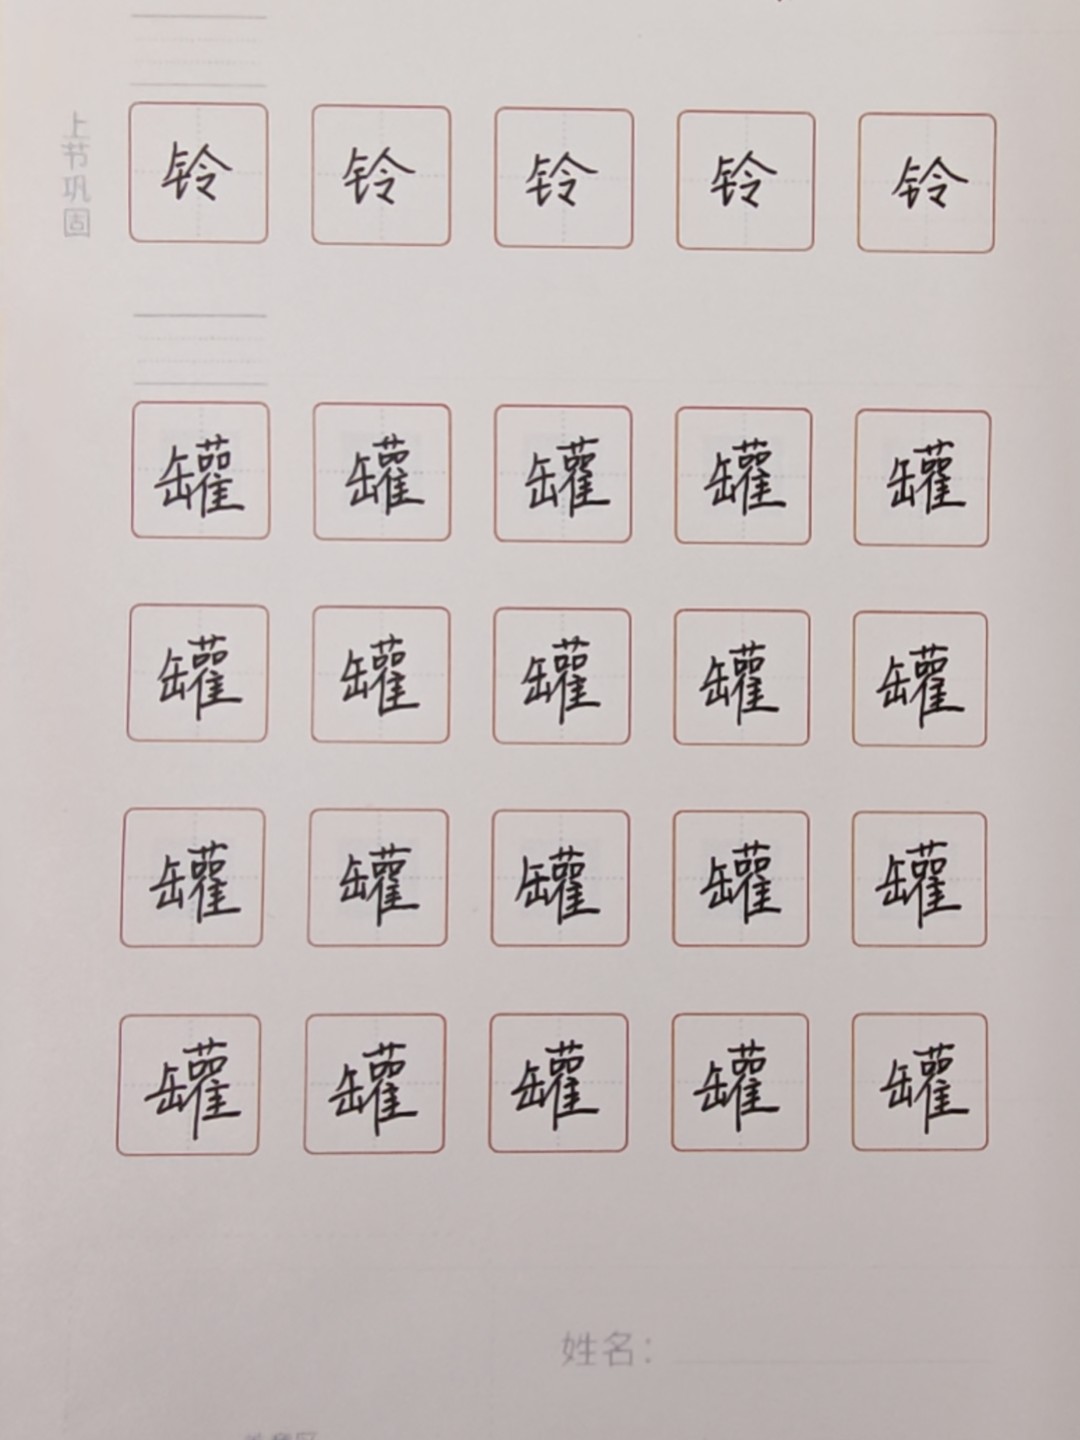 上节巩固
铃 铃 铃 铃 铃
罐 罐 罐 罐 罐
罐 罐 罐 罐 罐
罐 罐 罐 罐 罐
罐 罐 罐 罐 罐
姓名：